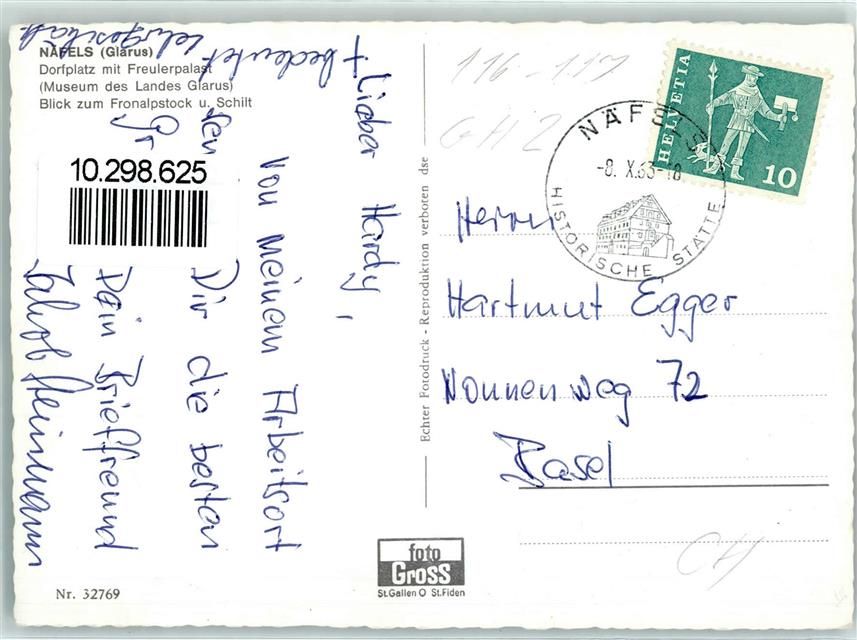 NÄFELS (Glarus)
Dorfplatz mit Freulerpalast
(Museum des Landes Glarus)
Blick zum Fronalpstock u. Schilt
10.298.625
Lieber Hardy,
Von meinem Arbeitsort
Dir die besten
Gr
Dein Brieffreund
Jakob Heinmann
+ bedeutet
Echter Fotodruck - Reproduktion verboten dse
116 - 117
GH 2
HELVETIA
10
NÄFELS
-8. X.63-18
HISTORISCHE STÄTTE
Herrn
Hartmut Egger
Nonnenweg 72
Basel
CH
foto
Gross
St.Gallen O St.Fiden
Nr. 32769